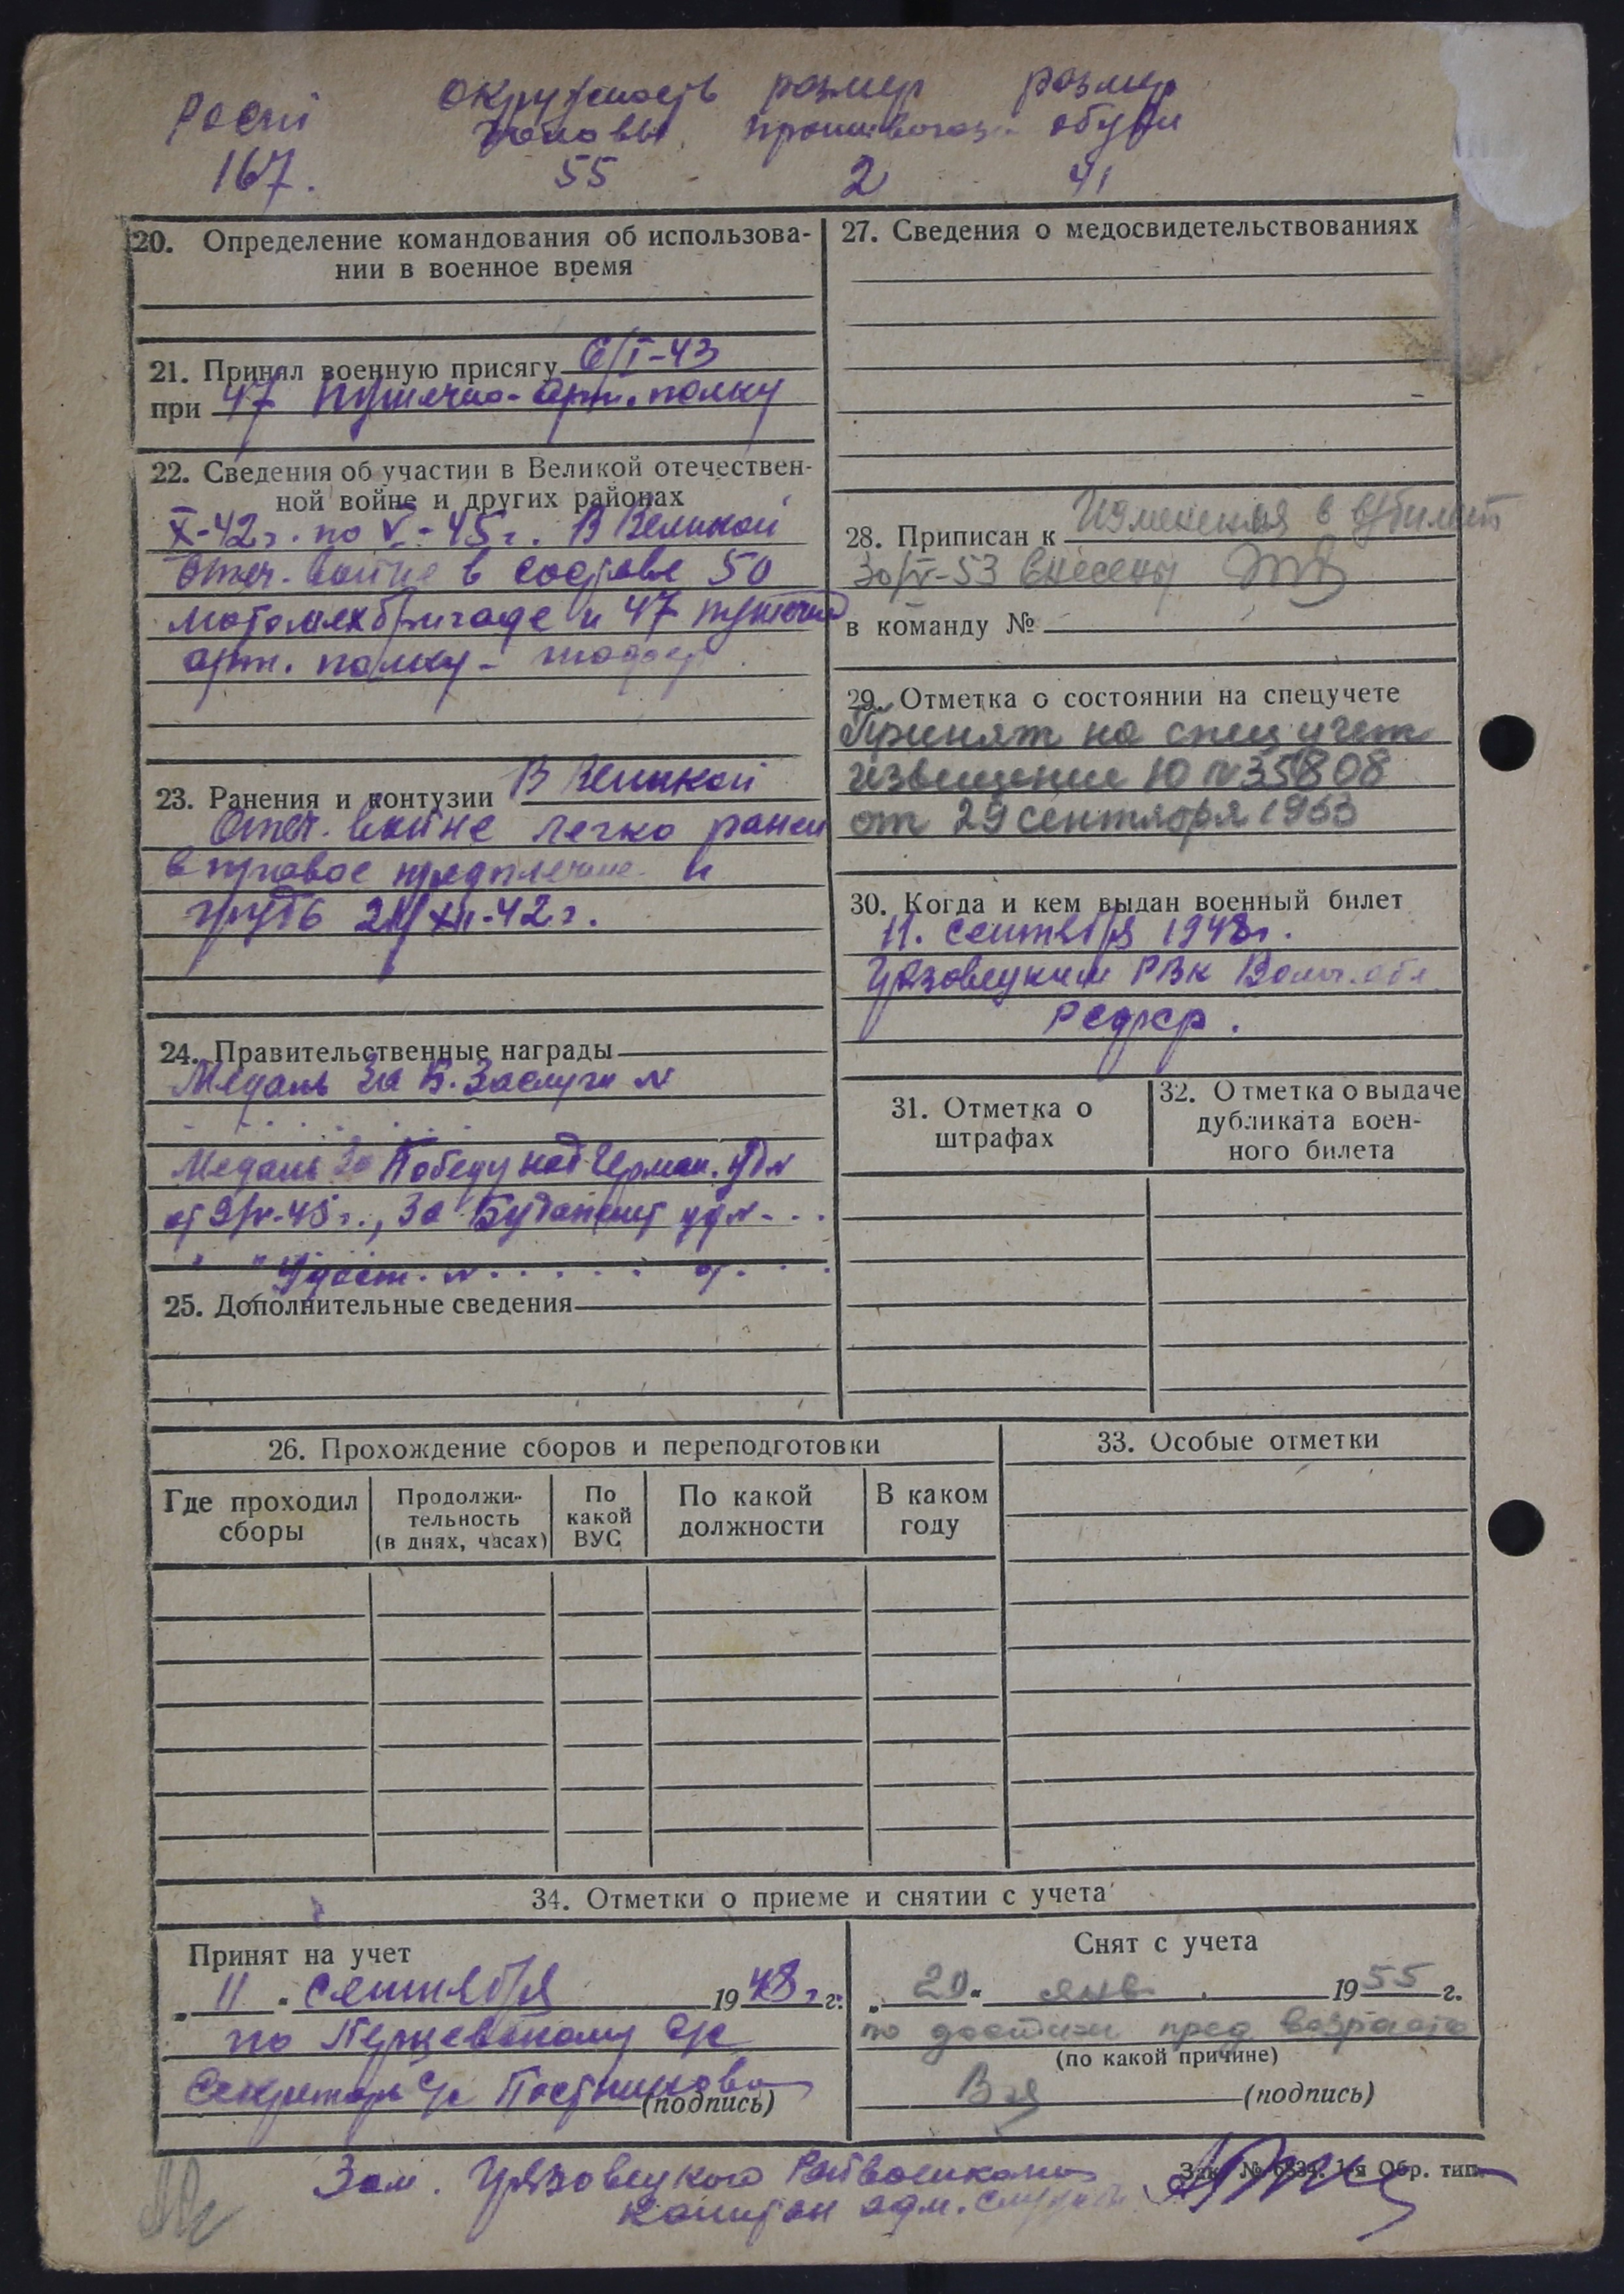 Рост
167.
окружность
головы
55
размер
противогаз
2
размер
обуви
41
20. Определение командования об использова-
нии в военное время
21. Принял военную присягу 6/I-43
при 47 Пушечно-арт. полку
22. Сведения об участии в Великой отечествен-
ной войне и других районах
X-42г. по V-45г. В Великой
Отеч. войне в составе 50
мотомехбригаде и 47 пушечно
арт. полку - шофер
23. Ранения и контузии В Великой
Отеч. войне легко ранен
в правое предплечие и
грудь 24/XII-42г.
24. Правительственные награды
Медаль За Б. Заслуги №
Медаль За Победу над Герман. уд №
от 9/V-45г., За Будапешт уд № - . .
" " Удост. № . . . . . от . . .
25. Дополнительные сведения
26. Прохождение сборов и переподготовки
Где проходил
сборы
Продолжи-
тельность
(в днях, часах)
По
какой
ВУС
По какой
должности
В каком
году
27. Сведения о медосвидетельствованиях
28. Приписан к Изменения в в/билет
30/V-53 внесены
в команду №
29. Отметка о состоянии на спецучете
Принят на спец учет
извещение Ю № 35808
от 29 сентября 1953
30. Когда и кем выдан военный билет
11. сентября 1948г.
Грязовецким РВК Волог. обл.
РСФСР.
31. Отметка о
штрафах
32. Отметка о выдаче
дубликата воен-
ного билета
33. Особые отметки
34. Отметки о приеме и снятии с учета
Принят на учет
„ 11 " сентября 1948 г. г.
по Перцевскому с/с
Секретарь с/с Постникова
(подпись)
Снят с учета
„ 20 " янв. 1955 г.
по достиж пред возраста
(по какой причине)
(подпись)
Зам. Грязовецкого Райвоенкома
капитан адм. службы
Зак. № 6834. 1-я Обр. тип.